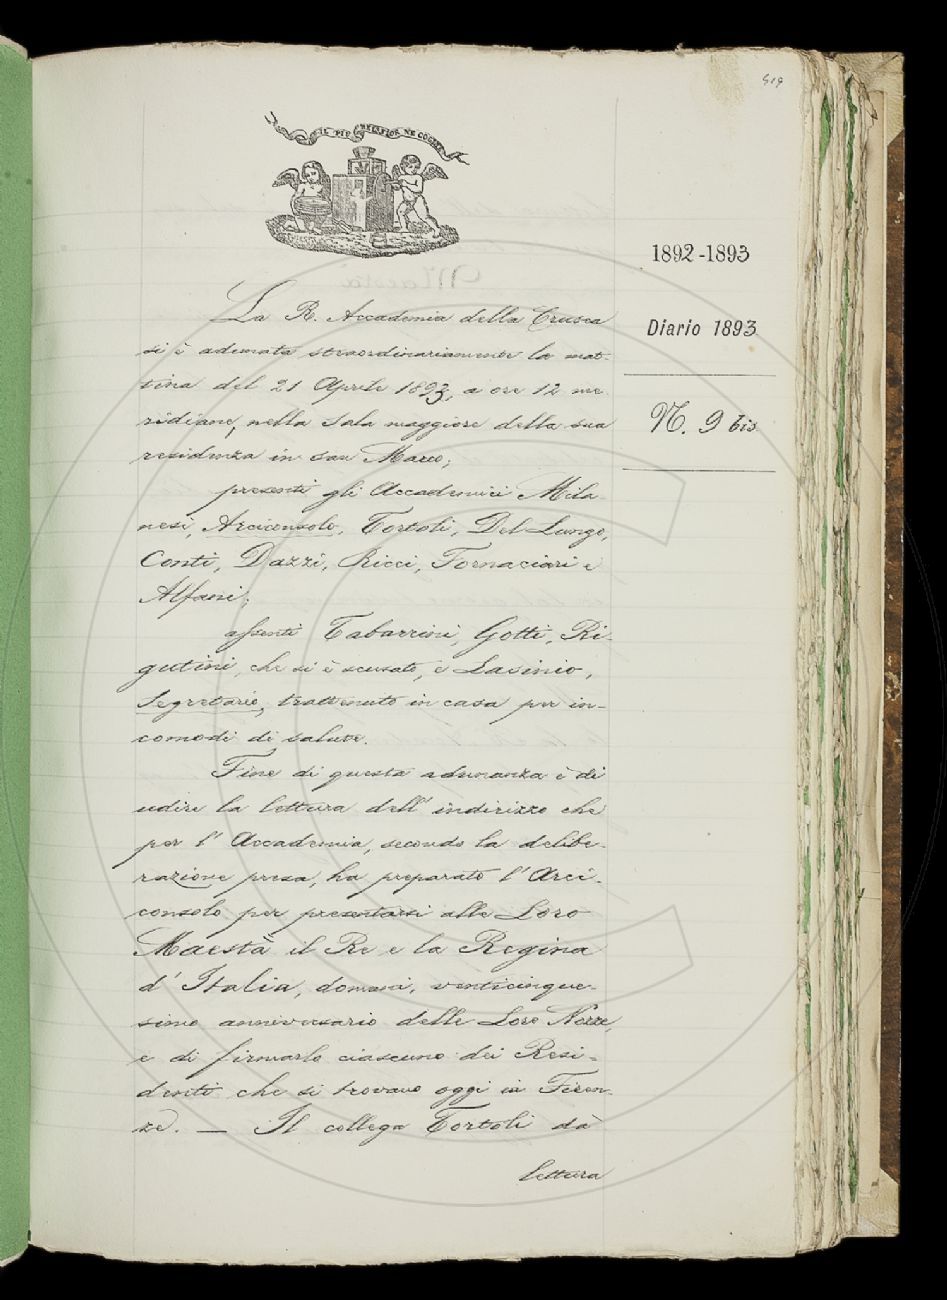 519
IL PIÙ BEL FIOR NE COGLIE
1892-1893
Diario 1893
N. 9 bis
La R. Accademia della Crusca
si è adunata straordinariamente la mat-
tina del 21 Aprile 1893, a ore 12 me-
ridiane, nella Sala maggiore della sua
residenza in San Marco;
presenti gli Accademici Mila-
nesi, Arciconsolo, Tortoli, Del Lungo,
Conti, Dazzi, Ricci, Fornaciari e
Alfani;
assenti Tabarrini, Gotti, Ri-
gutini, che si è scusato, e Lasinio,
Segretario, trattenuto in casa per in-
comodi di salute.
Fine di questa adunanza è di
udire la lettura dell'indirizzo che
per l'Accademia, secondo la delibe-
razione presa, ha preparato l'Arci-
consolo per presentarsi alle Loro
Maestà il Re e la Regina
d'Italia, domani, venticinque-
simo anniversario delle Loro Nozze,
e di firmarlo ciascuno dei Resi-
denti che si trovano oggi in Firen-
ze. — Il collega Tortoli dà
lettura